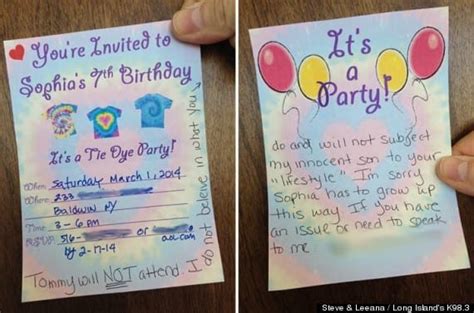 You're Invited to
Sophia's 7th Birthday
It's a Tie Dye Party!
When: Saturday March 1, 2014
Where: 233
Baldwin NY
Time: 3-6 PM
RSVP: 516- or
aol.com
by 2-17-14
Tommy will NOT attend. I
do not beleive in what you
It's
a
Party!
do and will not subject
my innocent son to your
"lifestyle". I'm sorry
Sophia has to grow up
this way. If you have
an issue or need to speak
to me
Steve & Leeana / Long Island's K98.3